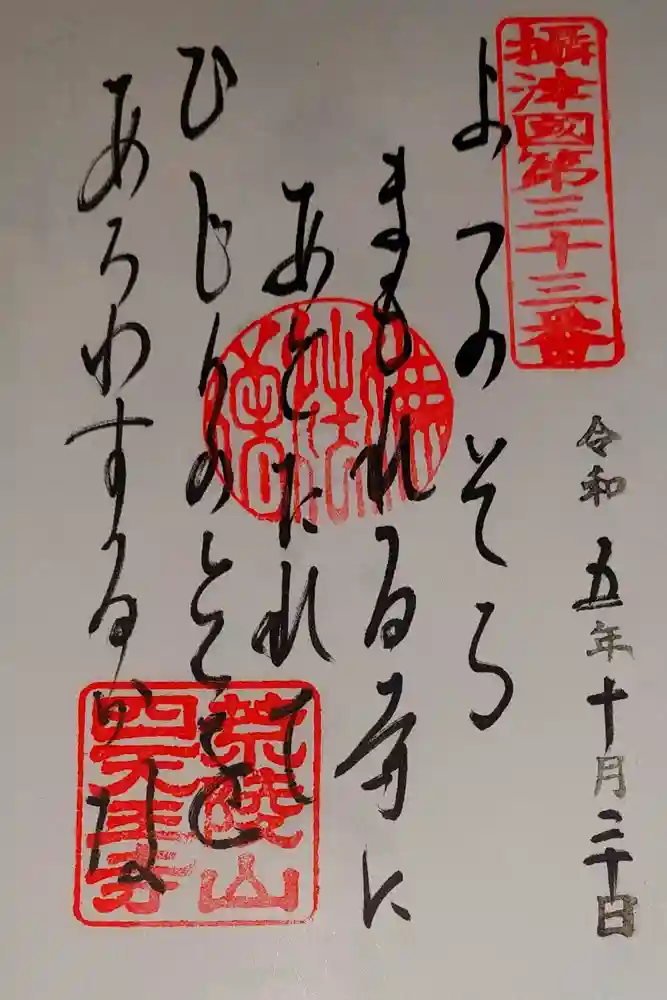 攝津國第三十三番
令和五年十月二十日
よつのそら
まもれる寺に
あとたれて
ひじりの
あらわする
荒陵山
四天王寺